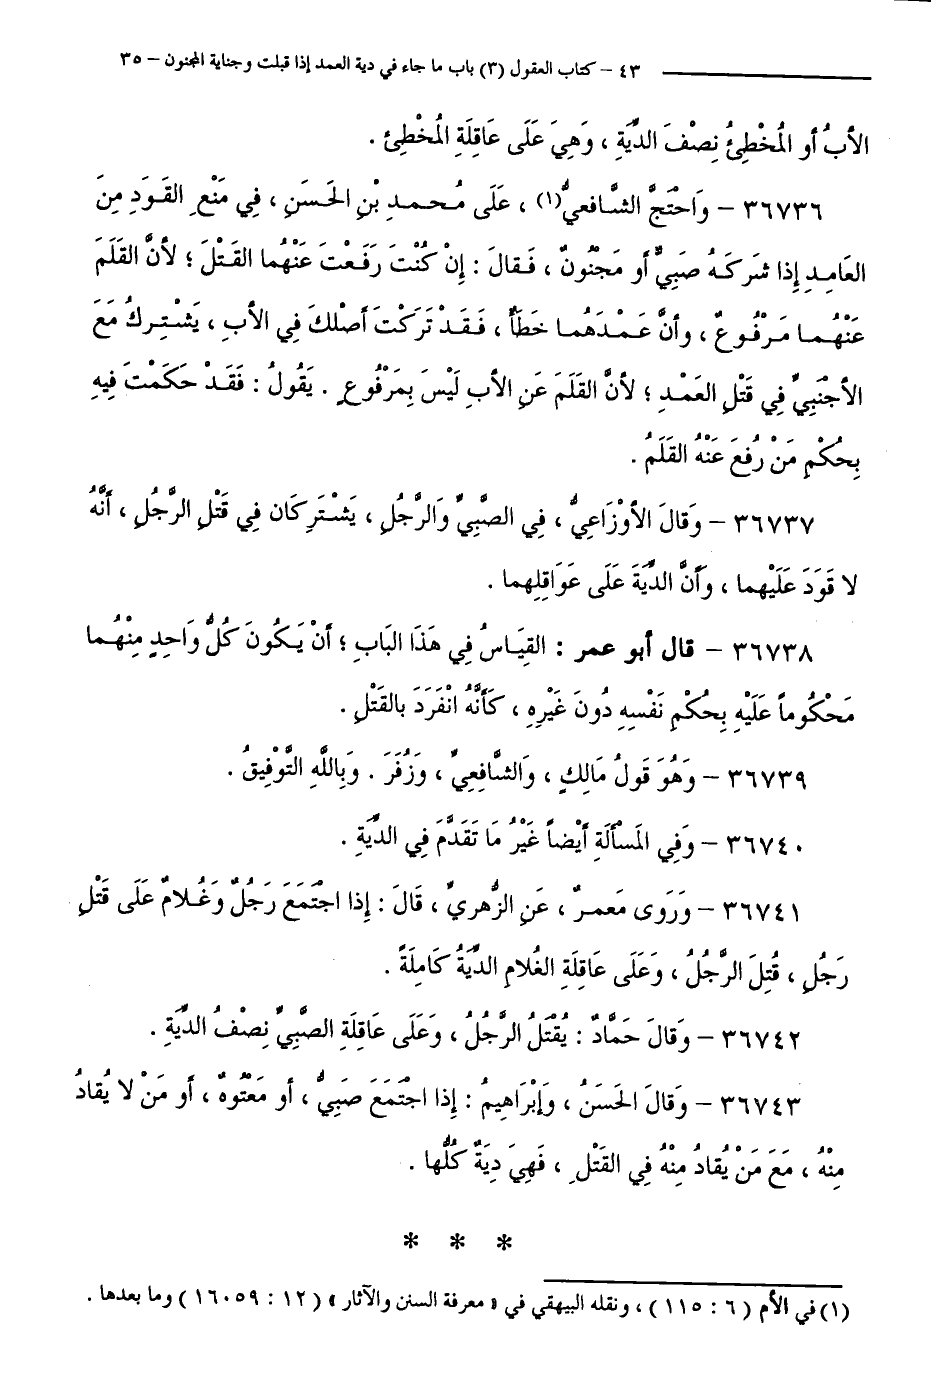 ٤٣ – كتاب العقول (٣) باب ما جاء في دية العمد إذا قبلت وجناية المجنون – ٣٥
الأبُ أو المُخْطِئُ نِصْفَ الدِّيَةِ ، وَهِيَ عَلَى عَاقِلَةِ المُخْطِئِ .
٣٦٧٣٦ – وَاحْتَجَّ الشَّافعيُّ(١) ، عَلَى مُحمدِ بْنِ الحَسَنِ ، فِي مَنْعِ القَوَدِ مِنَ
العَامِدِ إِذَا شَركَهُ صَبِيٌّ أو مَجْنُونٌ ، فَقالَ : إِنْ كُنْتَ رَفَعْتَ عَنْهُما القَتْلَ ؛ لأنَّ القَلَمَ
عَنْهُما مَرْفُوعٌ ، وأنَّ عَمْدَهُما خَطَأٌ ، فَقَدْ تَرَكْتَ أصْلكَ فِي الأبِ ، يَشْتِركُ مَعَ
الأجْنَبِيِّ فِي قَتْلِ العَمْدِ ؛ لأنَّ القَلَمَ عَنِ الأبِ لَيْسَ بِمَرْفُوعٍ . يَقُولُ : فَقَدْ حَكَمْتَ فِيهِ
بِحُكْمِ مَنْ رُفعَ عَنْهُ القَلَمُ .
٣٦٧٣٧ – وَقالَ الأوْزَاعيُّ ، فِي الصَّبِيِّ وَالرَّجُلِ ، يَشْتَرِكَان فِي قَتْلِ الرَّجُلِ ، أنَّهُ
لا قَوَدَ عَلَيْهِما ، وَأنَّ الدِّيَةَ عَلَى عَوَاقِلِهما .
٣٦٧٣٨ – قال أبو عمر : القِيَاسُ فِي هَذَا البَابِ ؛ أنْ يَكُونَ كُلُّ وَاحِدٍ مِنْهُما
مَحْكُوماً عَلَيْهِ بِحُكْمِ نَفْسِهِ دُونَ غَيْرِهِ ، كَأنَّهُ انْفَرَدَ بالقَتْلِ .
٣٦٧٣٩ – وَهُوَ قَولُ مَالِكٍ ، وَالشَّافِعِيِّ ، وَزُفَرَ . وَبِاللَّهِ التَّوْفِيقُ .
٣٦٧٤٠ – وَفِي المَسْألَةِ أيْضاً غَيْرُ مَا تَقَدَّمَ فِي الدِّيَةِ .
٣٦٧٤١ – وَرَوَى مَعمرٌ ، عَنِ الزُّهريِّ ، قَالَ : إِذَا اجتَمَعَ رَجُلٌ وَغُلامٌ عَلَى قَتْلِ
رَجُلٍ ، قُتِلَ الرَّجُلُ ، وَعَلَى عَاقِلَةِ الغُلامِ الدِّيَةُ كَامِلَةً .
٣٦٧٤٢ – وَقالَ حَمَّادٌ : يُقْتَلُ الرَّجُلُ ، وَعَلَى عَاقِلَةِ الصَّبِيِّ نِصْفُ الدِّيَةِ .
٣٦٧٤٣ – وَقالَ الحَسَنُ ، وَإِبْرَاهِيمُ : إِذَا اجتَمَعَ صَبِيٌّ ، أو مَعْتُوهٌ ، أو مَنْ لا يُقادُ
مِنْهُ ، مَعَ مَنْ يُقادُ مِنْهُ فِي القَتْلِ ، فَهِيَ دِيَةٌ كُلُّها .
* * *
(١) في الأم (٦ : ١١٥) ، ونقله البيهقي في « معرفة السنن والآثار » (١٢ : ١٦٠٥٩) وما بعدها .